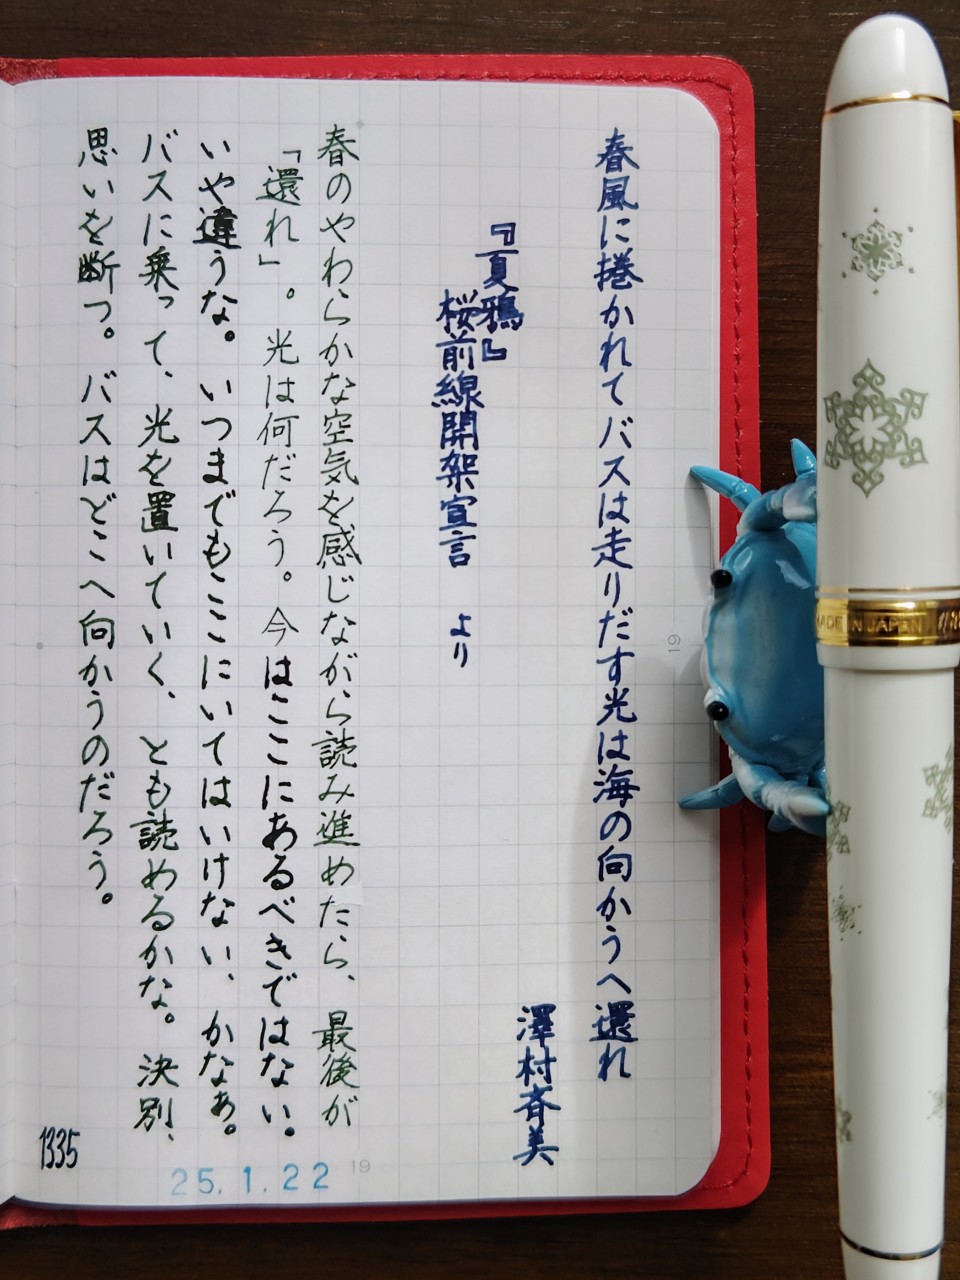 春風に捲かれてバスは走りだす光は海の向かうへ還れ
澤村斉美
『夏鴉』
桜前線開架宣言 より
春のやわらかな空気を感じながら読み進めたら、最後が
「還れ」。光は何だろう。今はここにあるべきではない。
いや違うな。いつまでもここにいてはいけない、かなぁ。
バスに乗って、光を置いていく、とも読めるかな。決別、
思いを断つ。バスはどこへ向かうのだろう。
1335
25.1.22
19
19
MADE IN JAPAN